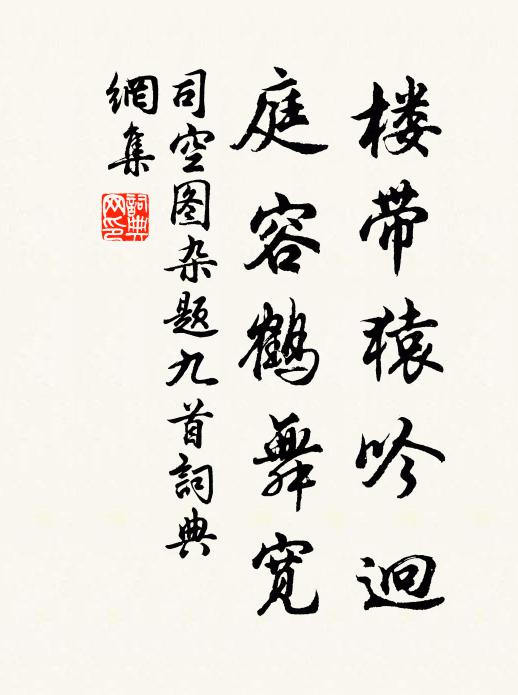 楼带猿吟迥
庭容鹤舞宽
司空图杂题九首詞典
網集
詞典网印